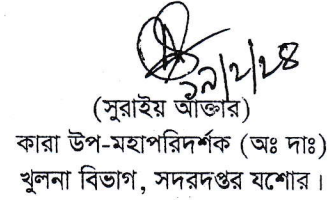 ১৯/২/২৪
(সুরাইয়া আক্তার)
কারা উপ-মহাপরিদর্শক (অঃ দাঃ)
খুলনা বিভাগ, সদরদপ্তর যশোর।